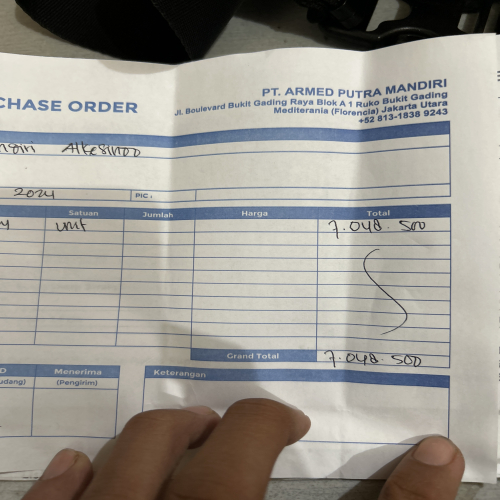 CHASE ORDER
PT. ARMED PUTRA MANDIRI
Jl. Boulevard Bukit Gading Raya Blok A 1 Ruko Bukit Gading
Mediterania (Florencia) Jakarta Utara
+52 813-1838 9243
ngiri Alkesindo
2024 PIC :
Satuan Jumlah Harga Total
unit 7.048.500
Grand Total 7.048.500
Menerima Keterangan
udang) (Pengirim)